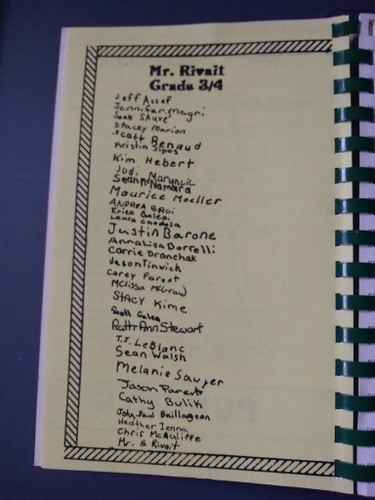 Mr. Rivait
Grade 3/4
Jeff Assef
Jennifer Magri
Sean Shuve
Stacey Marion
Scott Renaud
Kristin Sipos
Kim Hebert
Judi
Sean McNamara
Maurice Moeller
ANDREA BROI
Erica Galea
Laura
Justin Barone
Annalisa Borrelli
Carrie Dranchak
Jason Tinvick
Corey Parent
Melissa McGraw
Stacy Kime
Scott Galea
Ruth Ann Stewart
T.J. LeBlanc
Sean Walsh
Melanie Sawyer
Jason Parent
Cathy Bulik
John-Paul Baillargeon
Heather Jenna
Chris McAuliffe
Mr. Rivait